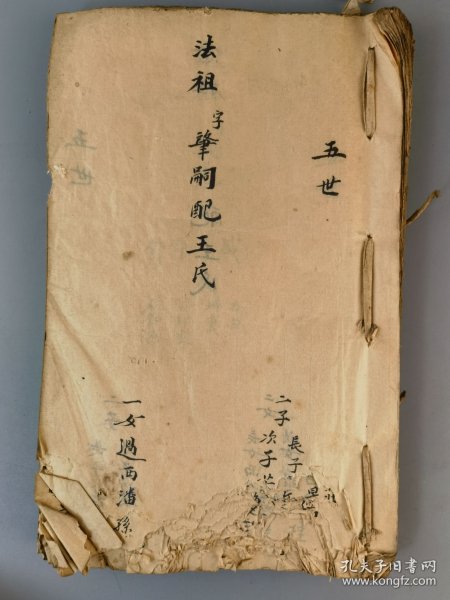 五世
法祖字肇嗣配王氏
二子長子
次子
一女過西潘孫
孔夫子旧书网
www.kongfz.com